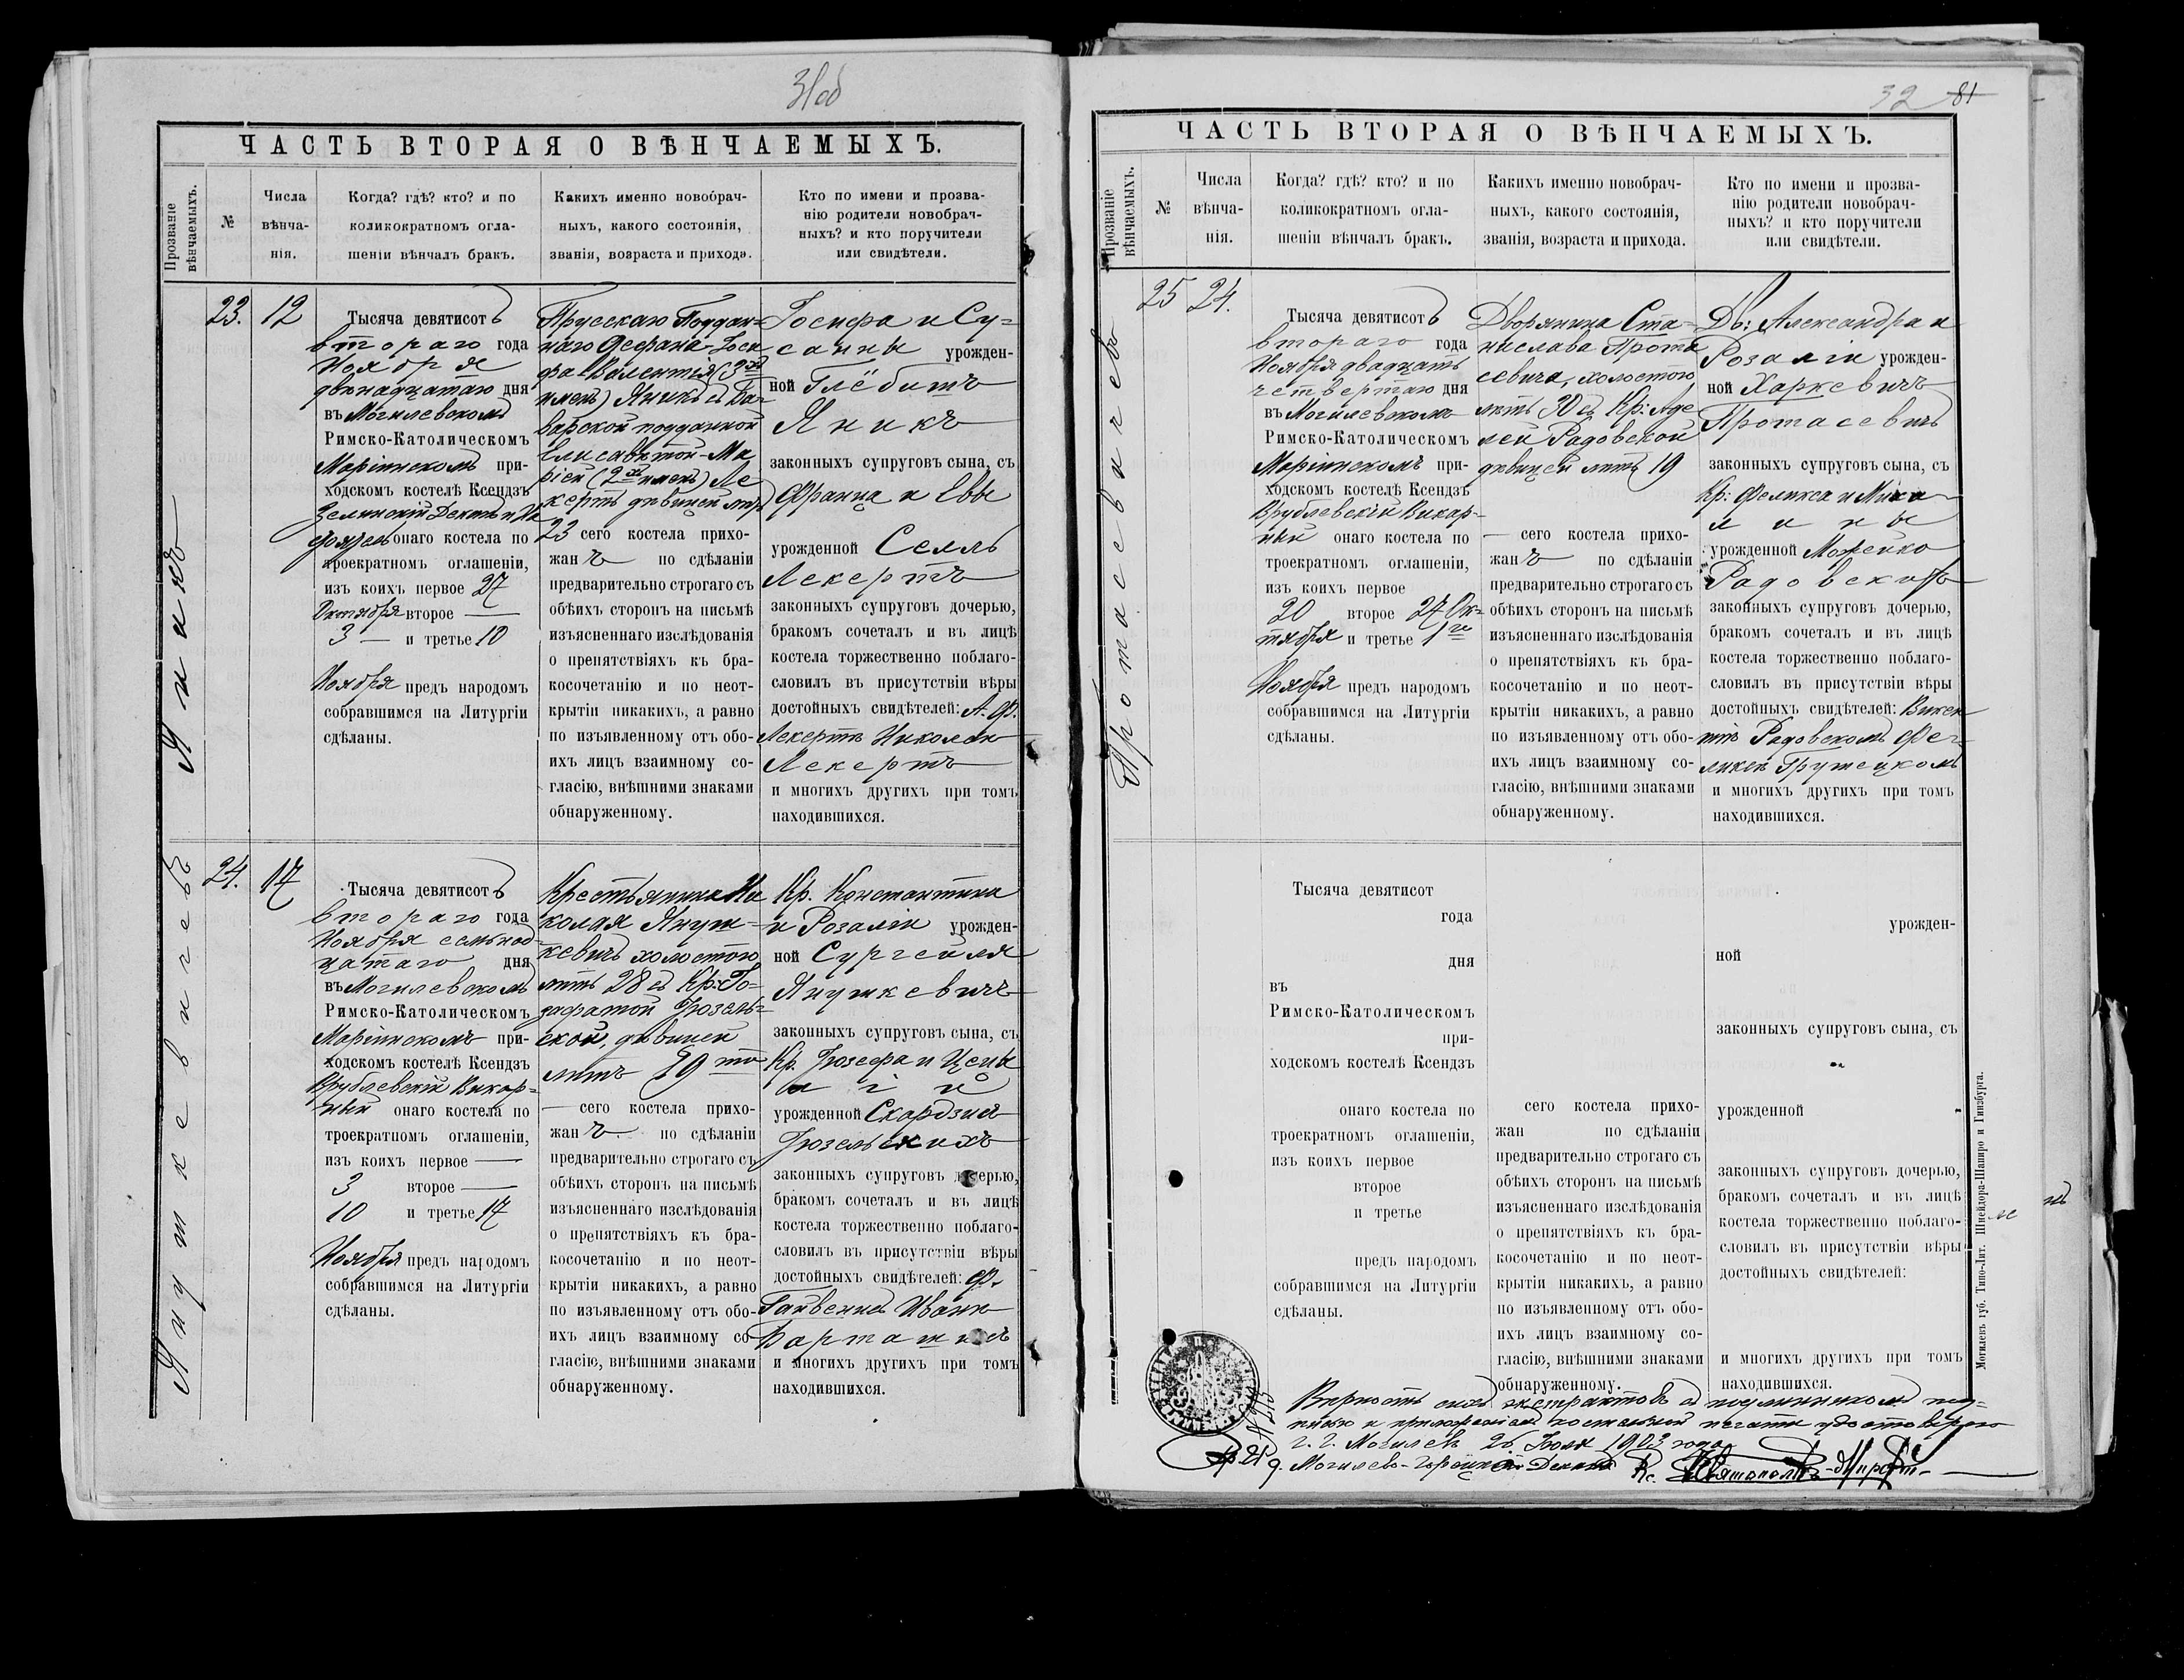 31об
ЧАСТЬ ВТОРАЯ О ВѢНЧАЕМЫХЪ.
Прозваніе вѣнчаемыхъ.
№
Числа вѣнча-нія.
Когда? гдѣ? кто? и по
коликократномъ огла-
шеніи вѣнчалъ бракъ.
Какихъ именно новобрач-
ныхъ, какого состоянія,
званія, возраста и прихода.
Кто по имени и прозва-
нію родители новобрач-
ныхъ? и кто поручители
или свидѣтели.
Яникъ
23.
12
Тысяча девятисотъ
втораго года
Ноября
двѣнадцатаго дня
въ Могилевскомъ
Римско-Католическомъ
Маріинскомъ при-
ходскомъ костелѣ Ксендзъ
онаго костела по
троекратномъ оглашеніи,
изъ коихъ первое 27
Октября второе —
3 — и третье 10
Ноября предъ народомъ
собравшимся на Литургіи
сдѣланы.
Прусскаго Поддан-
наго Стефана-Іоси
фа-Валентія (3хъ
именъ) Яникъ съ Ба-
варской подданной
Елисаветой-Ма
ріей (2хъ именъ) Ле
кертъ дѣвицей лѣтъ
23 сего костела прихо-
жанъ по сдѣланіи
предварительно строгаго съ
обѣихъ сторонъ на письмѣ
изъясненнаго изслѣдованія
о препятствіяхъ къ бра-
косочетанію и по неот-
крытіи никакихъ, а равно
по изъявленному отъ обо-
ихъ лицъ взаимному со-
гласію, внѣшними знаками
обнаруженному.
Іосифа и Су-
санны урожден-
ной Глёбитъ
Яникъ
законныхъ супруговъ сына, съ
Франца и Евы
урожденной Селль
Лекертъ
законныхъ супруговъ дочерью,
бракомъ сочеталъ и въ лицѣ
костела торжественно поблаго-
словилъ въ присутствіи вѣры
достойныхъ свидѣтелей: А. Ф.
Лекертъ Николаѣ
Лекертъ
и многихъ другихъ при томъ
находившихся.
Янушкевичевъ
24.
17
Тысяча девятисотъ
втораго года
Ноября семьнад-
цатаго дня
въ Могилевскомъ
Римско-Католическомъ
Маріинскомъ при-
ходскомъ костелѣ Ксендзъ
Врублевскій Викар-
ный онаго костела по
троекратномъ оглашеніи,
изъ коихъ первое —
3 второе —
10 и третье 17
Ноября предъ народомъ
собравшимся на Литургіи
сдѣланы.
Крестьянина Ни
колая Януш-
кевичъ холостого
лѣтъ 28 съ Кр: Іо-
зафатой Грозель-
ской, дѣвицей
лѣтъ 19ти
— сего костела прихо-
жанъ по сдѣланіи
предварительно строгаго съ
обѣихъ сторонъ на письмѣ
изъясненнаго изслѣдованія
о препятствіяхъ къ бра-
косочетанію и по неот-
крытіи никакихъ, а равно
по изъявленному отъ обо-
ихъ лицъ взаимному со-
гласію, внѣшними знаками
обнаруженному.
Кр. Константина
и Розаліи урожден-
ной Сургейля
Янушкевичъ
законныхъ супруговъ сына, съ
Кр. Іозефа и
урожденной Скардзия
Грозельскихъ
законныхъ супруговъ дочерью,
бракомъ сочеталъ и въ лицѣ
костела торжественно поблаго-
словилъ въ присутствіи вѣры
достойныхъ свидѣтелей: Ф.
Иванѣ
и многихъ другихъ при томъ
находившихся.
32 81
ЧАСТЬ ВТОРАЯ О ВѢНЧАЕМЫХЪ.
Прозваніе вѣнчаемыхъ.
№
Числа вѣнча-нія.
Когда? гдѣ? кто? и по
коликократномъ огла-
шеніи вѣнчалъ бракъ.
Какихъ именно новобрач-
ныхъ, какого состоянія,
званія, возраста и прихода.
Кто по имени и прозва-
нію родители новобрач-
ныхъ? и кто поручители
или свидѣтели.
Протасевичевъ
25
24.
Тысяча девятисотъ
втораго года
Ноября двадцать
четвертаго дня
въ Могилевскомъ
Римско-Католическомъ
Маріинскомъ при-
ходскомъ костелѣ Ксендзъ
Врублевскій Викар-
ный онаго костела по
троекратномъ оглашеніи,
изъ коихъ первое
20 второе 27 Ок-
тября и третье 1го
Ноября предъ народомъ
собравшимся на Литургіи
сдѣланы.
Дворянина Ста-
нислава Прота
севича, холостого
лѣтъ 30 съ Кр: Аде
лей Радовской
дѣвицей лѣтъ 19
— сего костела прихо-
жанъ по сдѣланіи
предварительно строгаго съ
обѣихъ сторонъ на письмѣ
изъясненнаго изслѣдованія
о препятствіяхъ къ бра-
косочетанію и по неот-
крытіи никакихъ, а равно
по изъявленному отъ обо-
ихъ лицъ взаимному со-
гласію, внѣшними знаками
обнаруженному.
Дв: Александра и
Розаліи урожден-
ной Харкевичъ
Протасевичъ
законныхъ супруговъ сына, съ
Кр: Феликса и Миха
лины
урожденной Можейко
Радовскихъ
законныхъ супруговъ дочерью,
бракомъ сочеталъ и въ лицѣ
костела торжественно поблаго-
словилъ въ присутствіи вѣры
достойныхъ свидѣтелей: Викен
тіѣ Радовскомъ Фе-
ликсѣ Грушецкомъ
и многихъ другихъ при томъ
находившихся.
Тысяча девятисот
года
дня
въ
Римско-Католическомъ
при-
ходскомъ костелѣ Ксендзъ
онаго костела по
троекратномъ оглашеніи,
изъ коихъ первое
второе
и третье
предъ народомъ
собравшимся на Литургіи
сдѣланы.
сего костела прихо-
жан по сдѣланіи
предварительно строгаго съ
обѣихъ сторонъ на письмѣ
изъясненнаго изслѣдованія
о препятствіяхъ къ бра-
косочетанію и по неот-
крытіи никакихъ, а равно
по изъявленному отъ обо-
ихъ лицъ взаимному со-
гласію, внѣшними знаками
обнаруженному.
урожден-
ной
законныхъ супруговъ сына, съ
урожденной
законныхъ супруговъ дочерью,
бракомъ сочеталъ и въ лицѣ
костела торжественно поблаго-
словилъ въ присутствіи вѣры
достойныхъ свидѣтелей:
и многихъ другихъ при томъ
находившихся.
Могилевъ губ. Типо-Лит. Шнейдора-Шапиро и Гинзбурга.
Вѣрность сихъ экстрактовъ съ подлинникомъ под-
писью и приложеніемъ костельной печати удостовѣряю
г. Г. Могилевъ 26 Іюля 1903 года
Могилево-Горецкій Деканъ Кс. Святополкъ-Мирскій